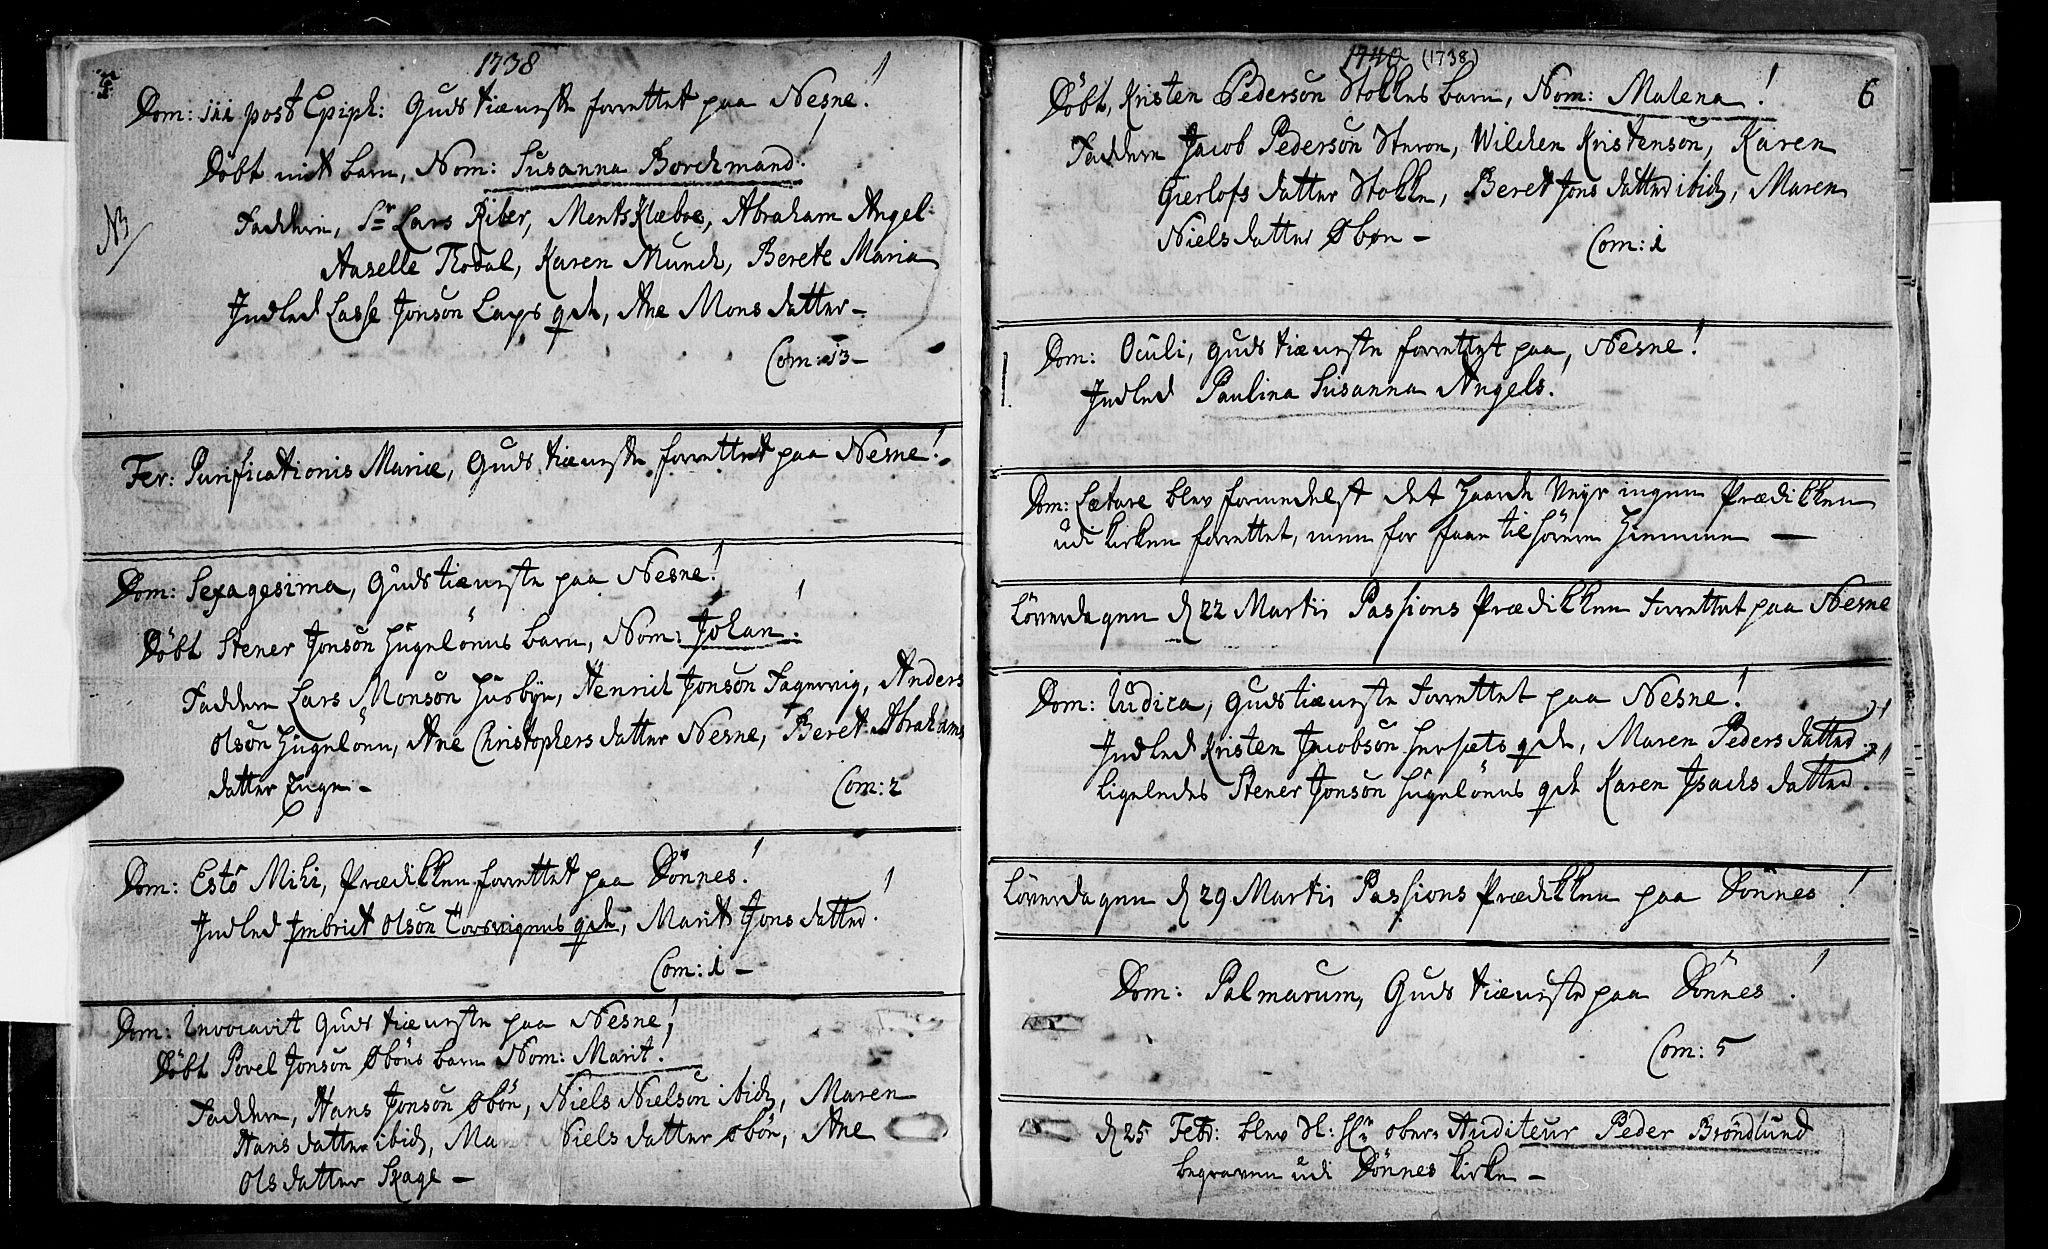 1738
Dom: iii post Epiph: Guds tieneste forrettet paa Nesne!
Döbt mit barn, Nom: Susanna Borchmand.
NB
Faddere, Sr Lars Riber, Ments Klæboe, Abraham Angel
Anselle Rodal, Karen Munch, Berete Maria
Indled Lasse Jonsøn Laps qde, Ane Mons datter –
Com: 13 –
Fer: Purificationis Mariæ, Guds tieneste forrettet paa Nesne!
Dom: Sexagesima, Guds tieneste paa Nesne!
Döbt Stener Jonsøn Hugelönus barn, Nom: Johan.
Faddere Lars Monsøn Husbye, Henrich Jonsøn Fagervig, Anders
Olsøn Hugelönn, Ane Christophers datter Nesne, Beret Abrahams
datter –
Com: 2
Dom: Esto Mihi, Prædikken forrettet paa Dönnes!
Indled Imbrict Olsøn qde, Marit Jons datter.
Com: 1 –
Dom: Invocavit Guds tieneste paa Nesne!
Döbt Povel Jonsøn Øböns barn Nom: Marit!
Faddere, Hans Jonsøn Øbön, Niels Nielsøn ibid, Maren
Hans datter ibid, Niels datter Øbön, Ane
Ols datter Skage –
1740 (1738)
6
Döbt, Kristen Pedersøn Stokkes barn, Nom: Malena!
Faddere Jacob Pedersøn, Wilchen Kristensøn, Karen
Gierlofs datter Stokke, Beret Jons datter ibid, Maren
Niels datter Øbön –
Com: 1
Dom: Oculi, Guds tieneste forrettet paa, Nesne!
Indled Paulina Susanna Angels.
Dom: Lætare blev formedelst det haarde Veyr ingen Prædikken
udi kirken forrettet, men for faae tilhörere hiemme –
Löverdagen d 22 Martii Passions Prædikken forrettet paa Nesne
Dom: Iudica, Guds tieneste forrettet paa Nesne!
Indled Kristen Jacobsøn qde, Maren Peders datter.
Ligeledes Stener Jonsøn Hugelönus qde Karen Isachs datter.
Löverdagen d 29 Martii Passions Prædikken paa Dönnes!
Dom: Palmarum, Guds tieneste paa Dönnes!
Com: 5
d 25 Febr: blev Sl: Hr ober-Auditeur Peder Bröndlund
begraven udi Dönnes kirke –